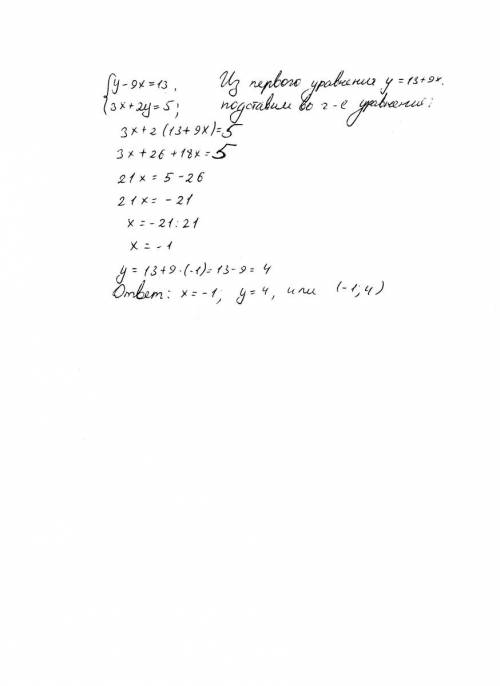 {y-9x=13,    Из первого уравнения y=13+9x.
{3x+2y=5;    подставим во 2-е уравнений:
3x+2(13+9x)=5
3x+26+18x=5
21x=5-26
21x=-21
x=-21:21
x=-1
y=13+9·(-1)=13-9=4
Ответ: x=-1; y=4, или (-1;4)